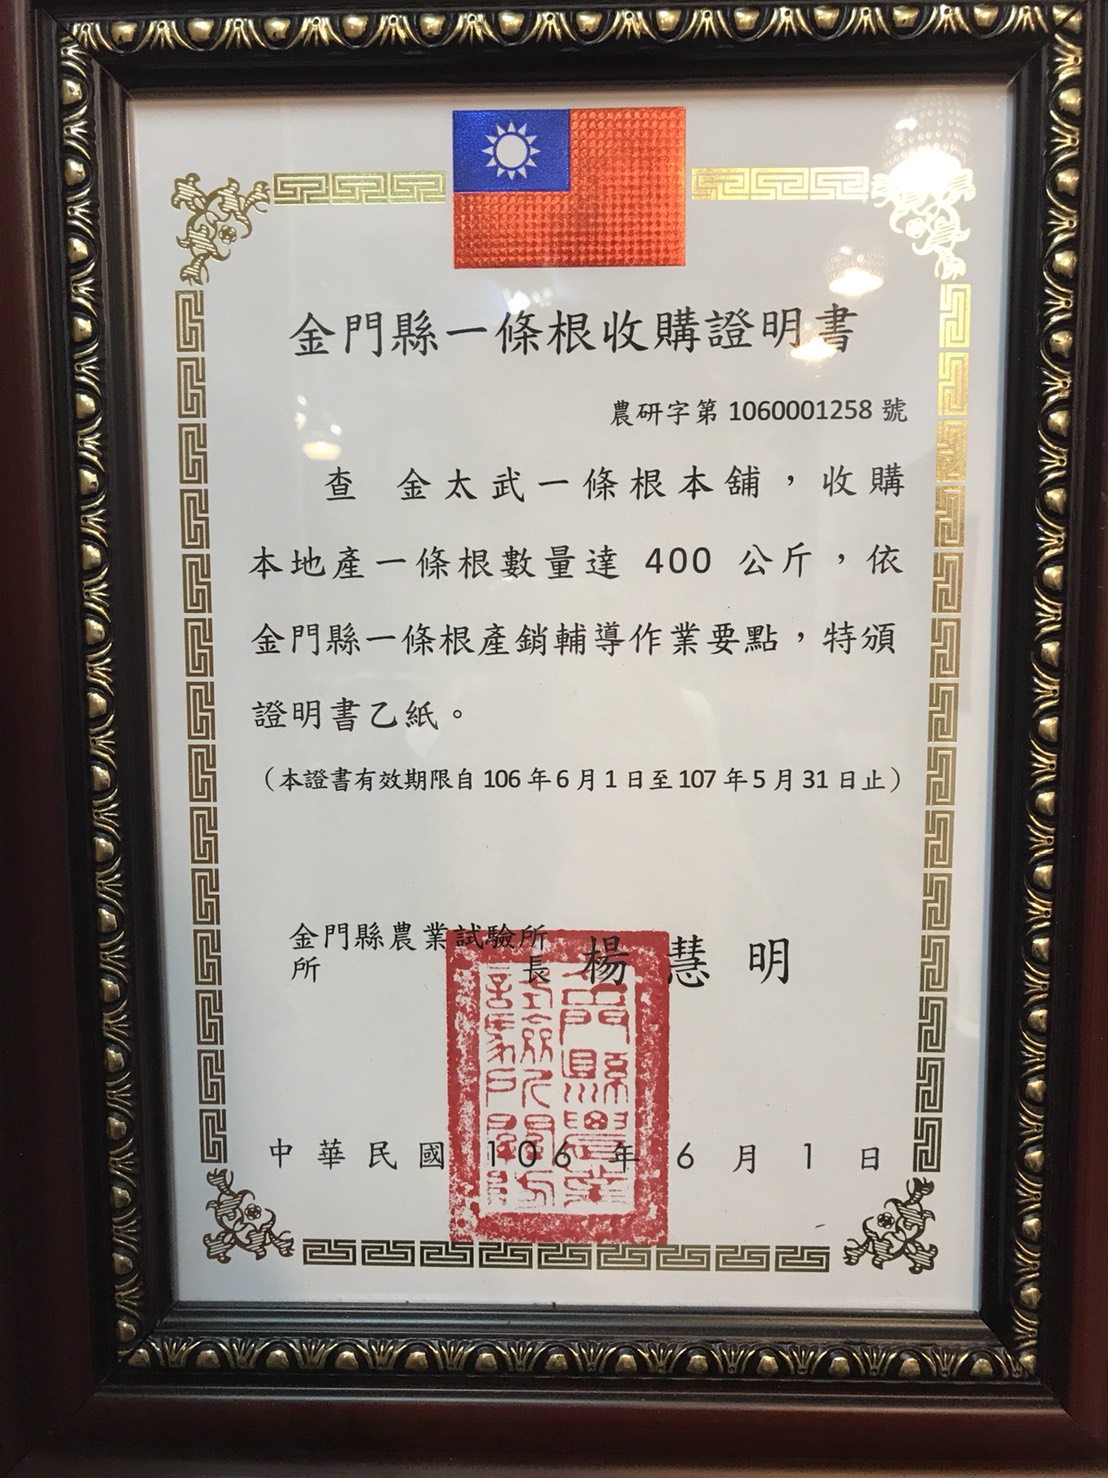 金門縣一條根收購證明書
農研字第 1060001258 號
查 金太武一條根本舖，收購
本地產一條根數量達 400 公斤，依
金門縣一條根產銷輔導作業要點，特頒
證明書乙紙。
（本證書有效期限自 106 年 6 月 1 日至 107 年 5 月 31 日止）
金門縣農業試驗所
所 長 楊 慧 明
中 華 民 國 106 年 6 月 1 日